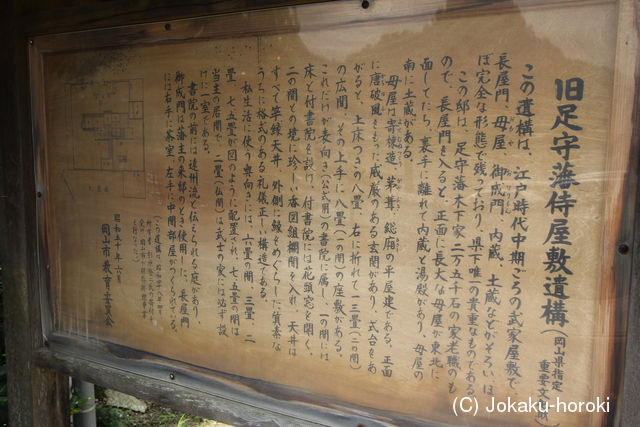 旧足守藩侍屋敷遺構
(岡山県指定
重要文
この遺構は、江戸時代中期ごろの武家屋敷で
長屋門、母屋、御成門、内蔵、土蔵などがそろい、ほ
ぼ完全な形態で残っており、県下唯一の貴重なものである
この邸は、足守藩木下家二万五千石の家老職のも
ので、長屋門を入ると、正面に長大な母屋が東北に
面してたち、裏手に離れて内蔵と湯殿があり、母屋の
南に土蔵がある。
母屋は寄棟造、茅葺、総廂の平屋建である。正面
に唐破風をもった威厳のある玄関があり、式台をあ
がると、上床つきの八畳、右に折れて一三畳(二の間)
の広間、その上手に八畳(一の間)の座敷がある。
これだけが表向き(公式用)の書院に属し、一の間には
床と付書院を設け、付書院には花頭窓を開く。
二の間との境に珍しい香図組欄間を入れ、天井は
すべて竿縁天井、外側に縁をめぐらした質素な
うちに格式のある礼儀正しい構造である。
私生活に使う奥向きには、六畳の間、三畳、二
畳、七・五畳が図のように配置され、七・五畳の間は
当主の居間で、二畳(仏間)は武士の家には必ず設
けた室である。
書院の前には遠州流と伝えられる庭があり、
御成門は藩主の来邸のさい使用した、長屋門
には右手に茶室、左手に中間部屋がつくられている。
昭和五十年六月
岡山市教育委員会
(C) Jokaku-horoki